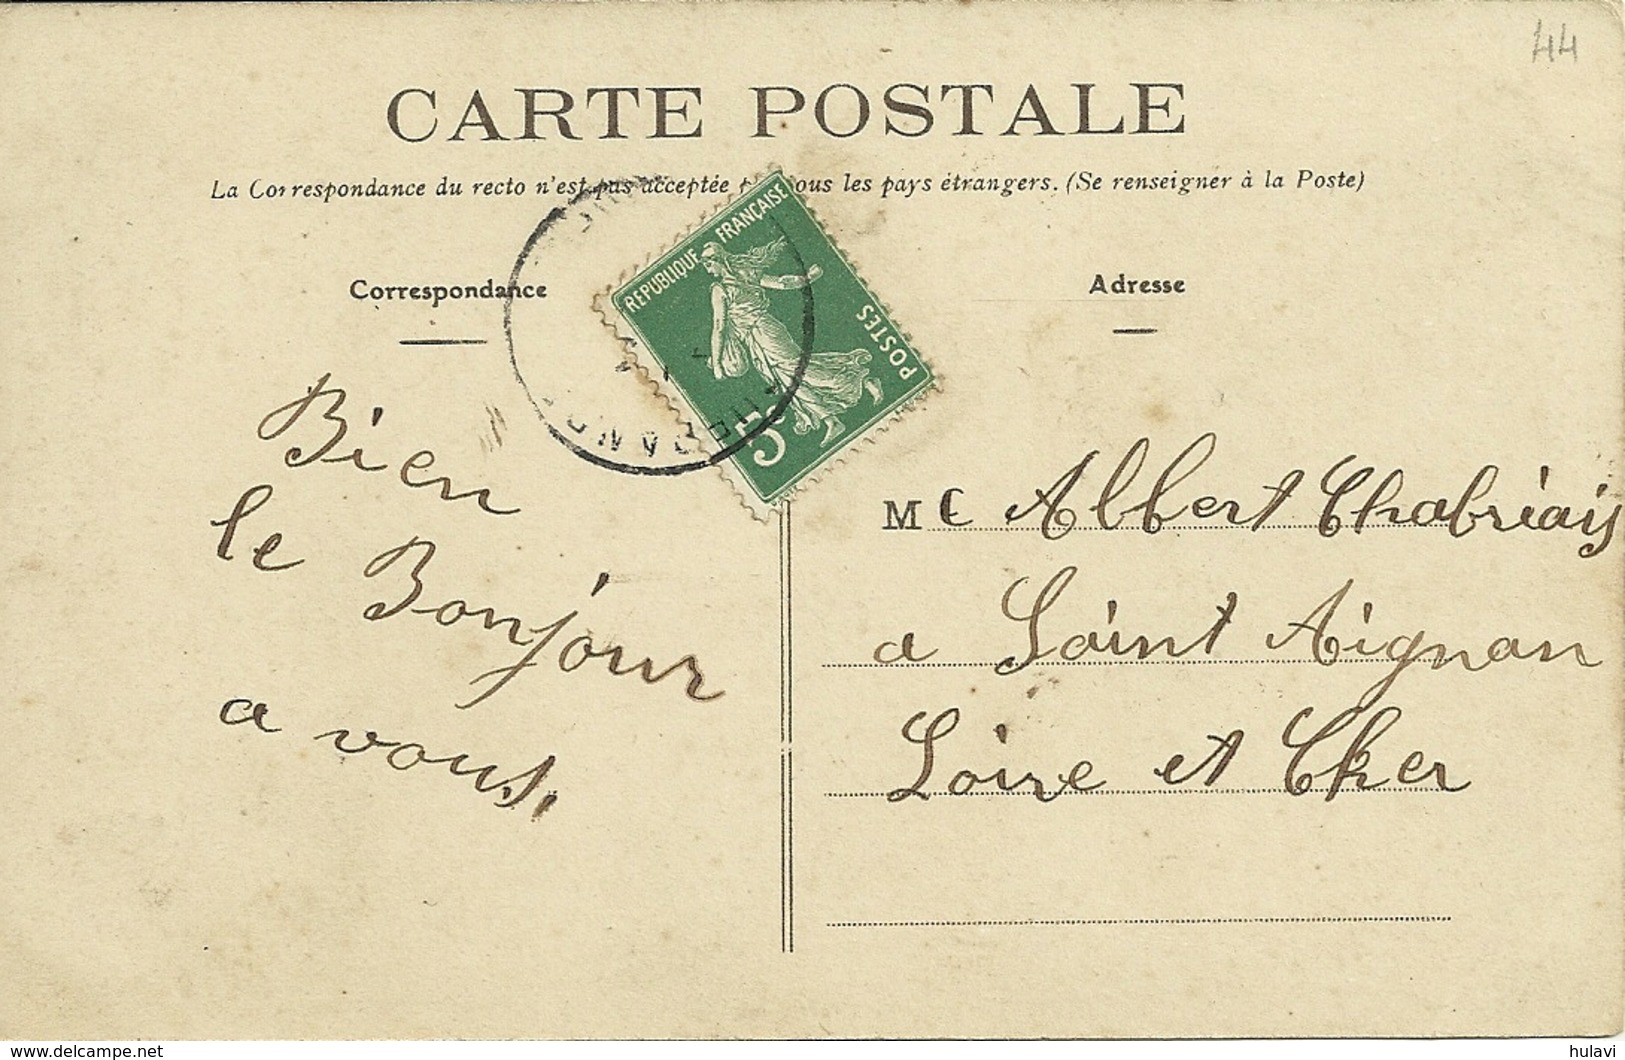 44
CARTE POSTALE
La Correspondance du recto n'est pas acceptée ous les pays étrangers. (Se renseigner à la Poste)
Correspondance
Adresse
REPUBLIQUE FRANÇAISE
POSTES
5c
Bien
le Bonjour
a vous.
Me Albert Chabriais
a Saint Aignan
Loire et Cher
www.delcampe.net
hulavi